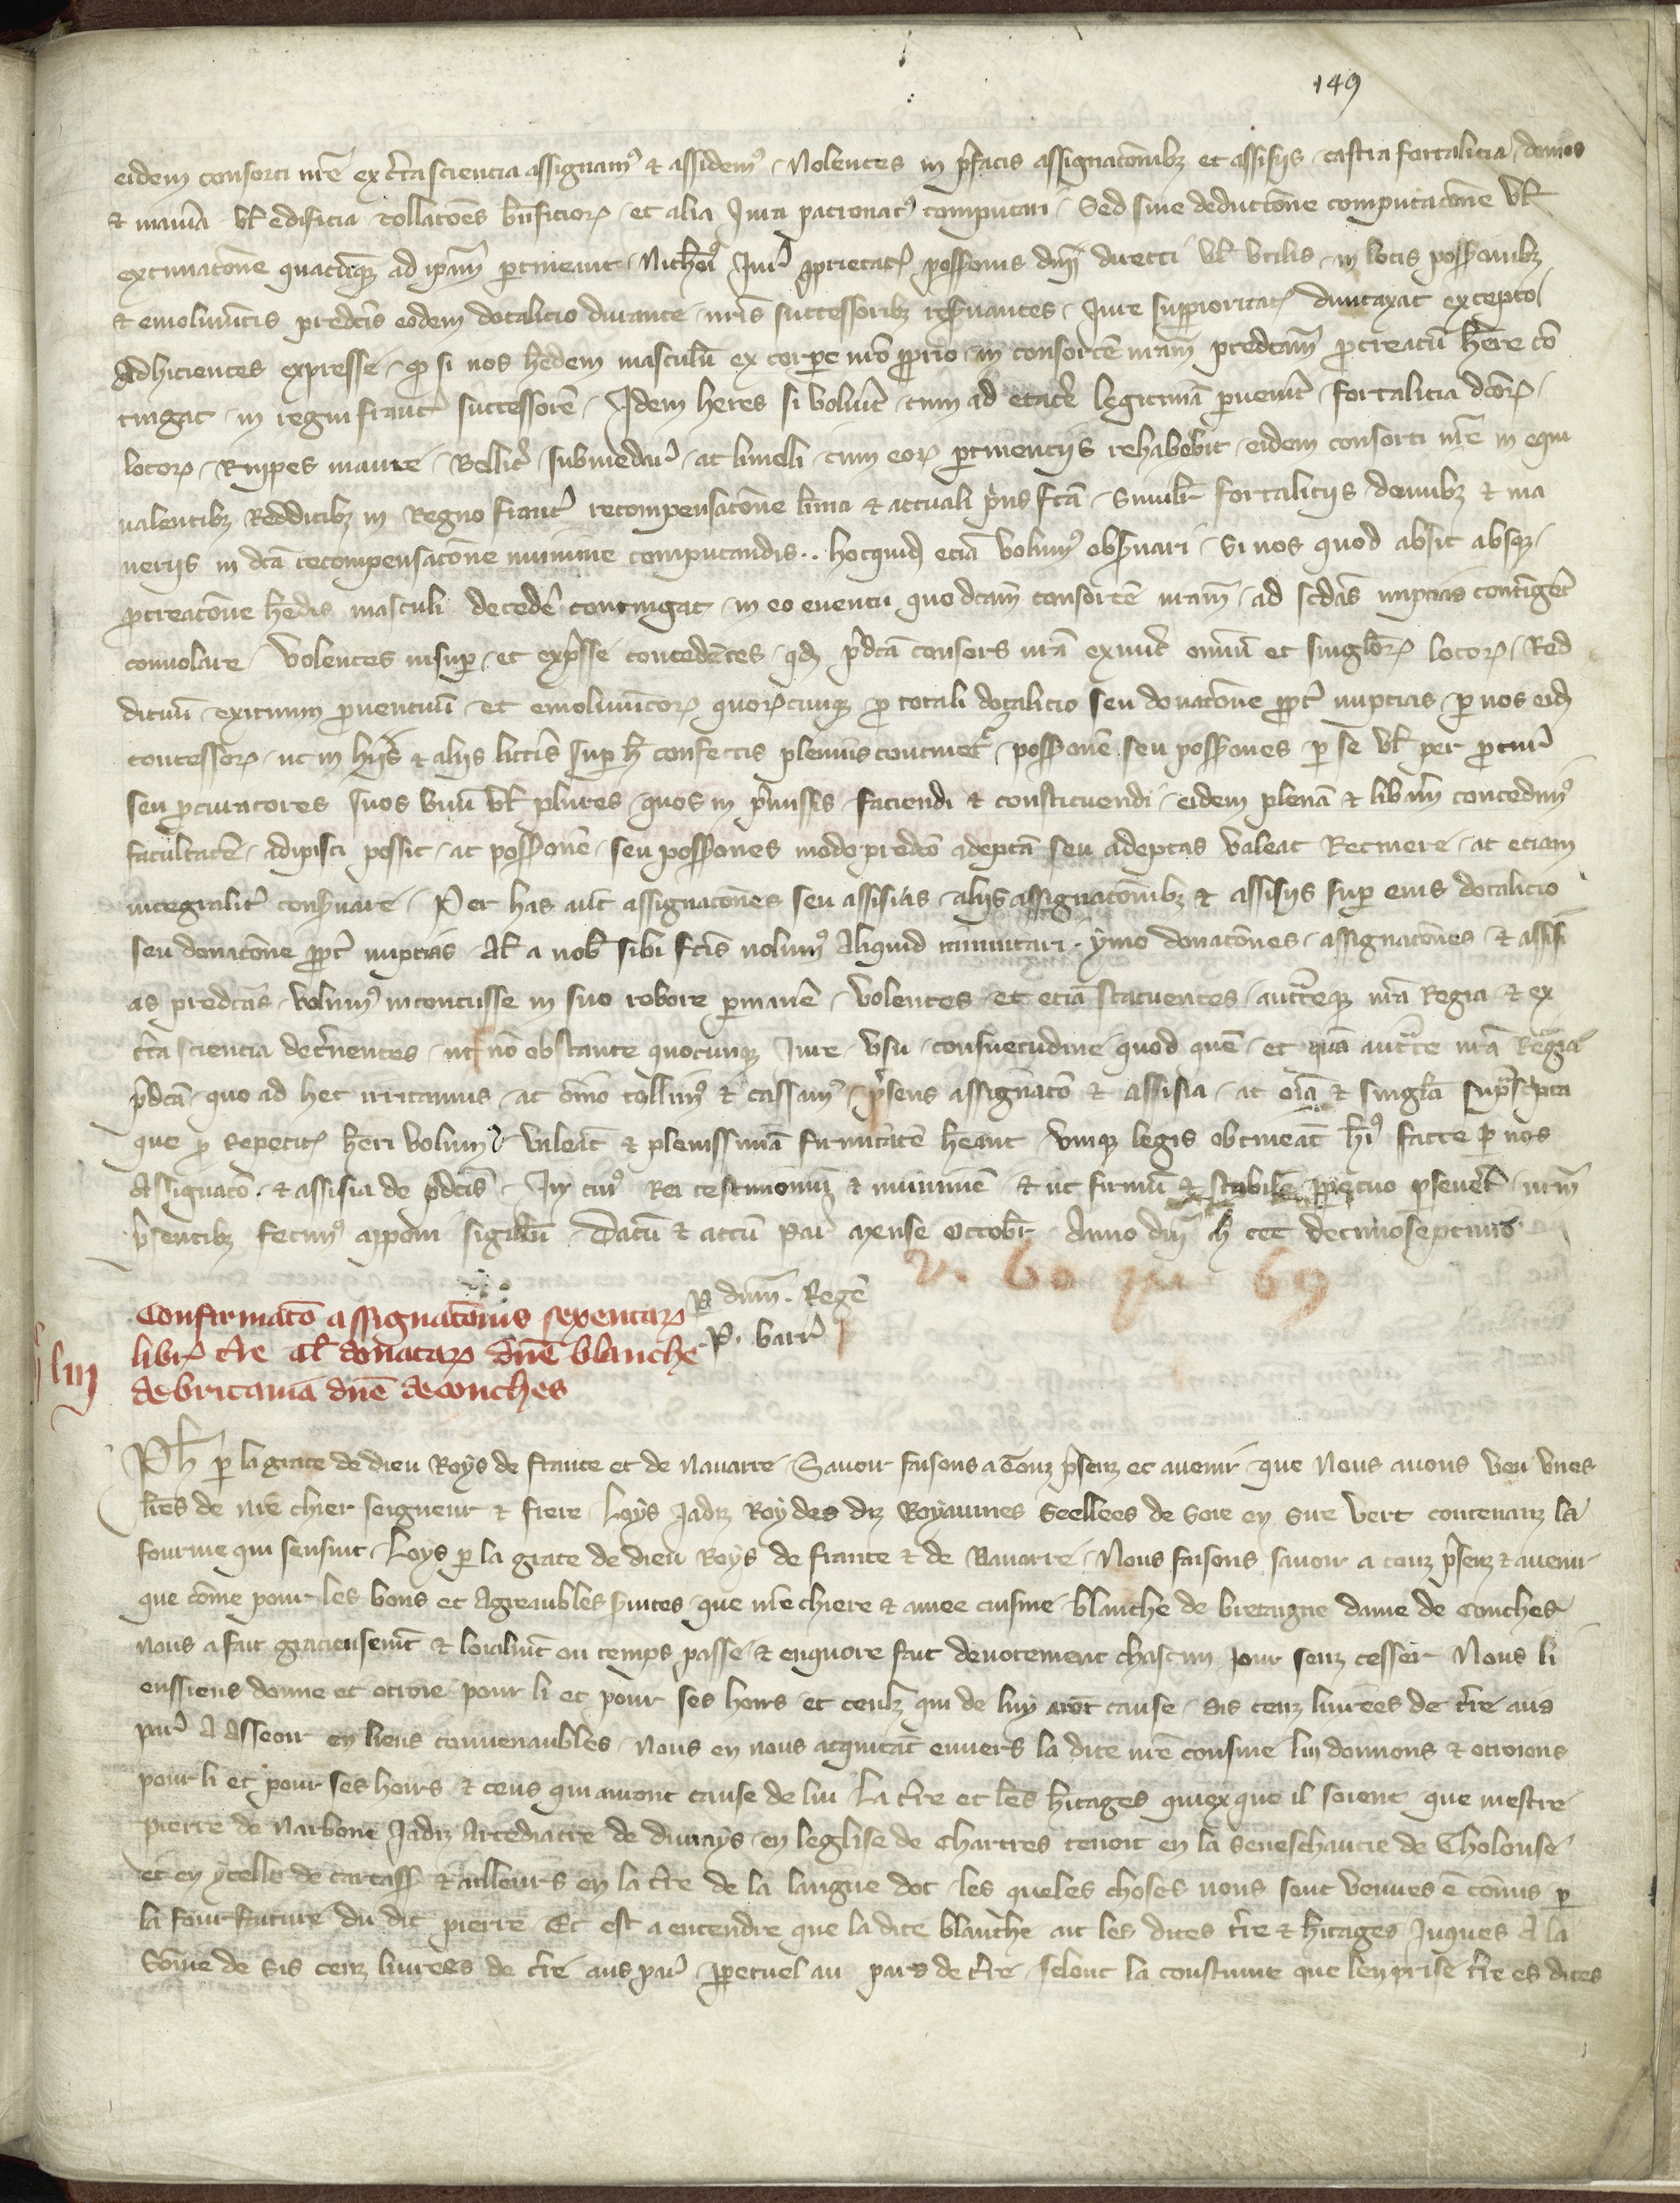 149
eidem consorti nr̃e ex c̃ta sciencia assignam⁹ & assidem⁹ . Nolentes in p̃fatis assignatõnibȝ et assisiis . castra fortalicia . domos
& man̾ia vł edificia collatõẽs bñficioꝝ . et alia Jura patronat⁹ computari . Sed sine deductõne computacõne vł
extimatõne quacũqꝫ ad ip̃am p̾tineant . Nichil Jur̾ ꝓprietat̾ possessionis dñii directi vł utilis . in locis possessionibȝ
& emolum̃tis predc̃is eodem dotalicio durante . nr̃is successoribȝ reẜuantes . Jure supioritat̾ duntaxat excepto
Adhicientes expresse . ꝙ si nos h̾edem masculũ ex corpe nr̃o ꝓprio . in consortẽ nr̃am predc̃am p̾creatũ h̾ere cõ
tingat . in regni franc̾ successorẽ . Idem heres si voluerit . cum ad etatẽ legitimã puen̾it . fortalicia dc̃oꝝ
locoꝝ . Ruppes maure . Bellic̾ . submedii . ac lunelli . cum eoꝝ ptinentiis rehabeb̾it . eidem consorti nr̃e in equi
ualentibȝ Redditibȝ in Regno franc̾ recompensatõne lĩma & actuali p̾us fc̃a . Simił fortaliciis domibȝ & ma
neriis in dc̃a recompensatõne minime computandis .. hoc quidẽ eciã volum⁹ obẜuari . Si nos quod absit absqꝫ
p̾creatõne h̾edis masculi decedẽ contingat . in eo euentu quo dc̃am consortẽ nr̃am . ad sc̃das nuptias contig̾et
conuolare . Volentes insup . et exp̾sse concedentes . qđ p̾dc̃a consors nr̃a exnũc omñiũ et singłoꝝ locoꝝ . Red
dituũ . exituum puentuũ . et emolum̃toꝝ quoꝝcunqꝫ . ꝓ totali dotalicio seu donatõne ꝓpt̾ nuptias . p nos eid̾
concessoꝝ . ut in hiis & aliis litt̾is suꝑ h̾ confectis plenius contineť . possessionẽ seu possessiones . p se vł per p̾cur̾
seu p̾curatores suos unũ vł plures . quos in p̾missis faciendi & constituendi . eidem plenã & lib̾am concedim⁹
facultatẽ . adipisci possit . ac possessionẽ . seu possessiones modo predc̃o adeptã seu adeptas valeat Retinere . ac etiam
integralit̾ conẜuare . Per has aut̾ assignatõnes seu assisias . aliis assignatõnibȝ & assisiis suꝑ eius dotalicio
seu donatõne ꝓpt̾ nuptias . Ał a nob̾ sibi fc̃is nolum⁹ Aliquid inmutari . ymo donatõnes . assignatõnes . & assisi
as predc̃as . volum⁹ inconcusse in suo robore pmanẽ . Volentes . et etiã statuentes . auct̾teqꝫ nr̃a Regia & ex
c̾ta sciencia dec̾nentes . ut nõ obstante quocunqꝫ Jure . usu . consuetudine . quod quẽ . et quã auct̾te nr̃a Regia
p̾dc̃a . quo ad hec irritamus . ac om̃ino tollim⁹ & cassam⁹ . p̾sens assignatõ & assisia . ac oĩa & singł̾a sup̾sc̾pta
que ꝓ repetit̾ h̾eri volum⁹ . valeãt & plenissimã firmitatẽ h̾eant vimqꝫ legis obtineãt hi⁹ facte p nos
Assignatõ . & assisia de p̾dc̃is . In cui⁹ Rei testimoniũ & munimẽ . & ut firmũ & stabile ꝑpetuo ꝑseuer̾t . nr̃m
p̾sentibȝ fecim⁹ apponi sigillũ . Datũ & actũ Par̾ mense Octobr̾ . Anno dñi M̾ ccc̾ decimoseptimo
v. 60 qu 69
ꝑ dñm . Regẽ
P. barr̾
Confirmatõ assignatõnis sexentaꝝ
libr̾ t̾re ał donataꝝ dñe blanche
de britania dñe de conches
liii
Ph̾ p la grace de dieu Roys de france et de nauarre . Sauoir faisons a Touz p̾senz et auenir . que Nous auons veu vnes
l̾res de nr̃e chier seigneur & frere . Loys Jadiz Roy des diz Royaumes Seellees de soie en sire vert contenanz la
fourme qui sensuit . Loys p la grace de dieu Roys de france & de Nauarre . Nous faisons sauoir a touz p̾senz & auenir
que cõme pour les bons et Agreaubles ẜuices . que nr̃e chiere & amee cusine . blanche de bretaigne dame de Conches
nous a fait gracieusem̃t & loialm̃t ou temps passe & enquore fait deuotement chascun Jour senz cesser . Nous li
eussiens donne et otroie pour li et pour ses hoirs . et ceulz qui de luy aiẽt cause . sis cenz liurees de t̾re aus
par̾ A asseoir en liens conuenaubles . Nous en nous acquitãt enuers la dite nr̃e cousine lui donnons & otroions
pour li et pour ses hoirs & ceus qui auront cause de lui La t̾re et les h̾itages quiex que il soient que mestre
pierre de Narbone Jadiz Arcediacre de dunays . en leglise de Chartres tenoit en la Seneschaucie de Tholouse
et en ycelle de carcass̾ & ailleurs en la t̾re de la langue doc . les queles choses nous sont venues ẽ cõmis . p
la fourfaiture du dit pierre . Et est a entendre que la dite blanche ait les dites t̾re & h̾itages Juques A la
Sõme de sis cenz liurees de t̾re aus par̾ . ꝑpetuel au pris de t̾re . selonc la coustume que len prise t̾re es dites